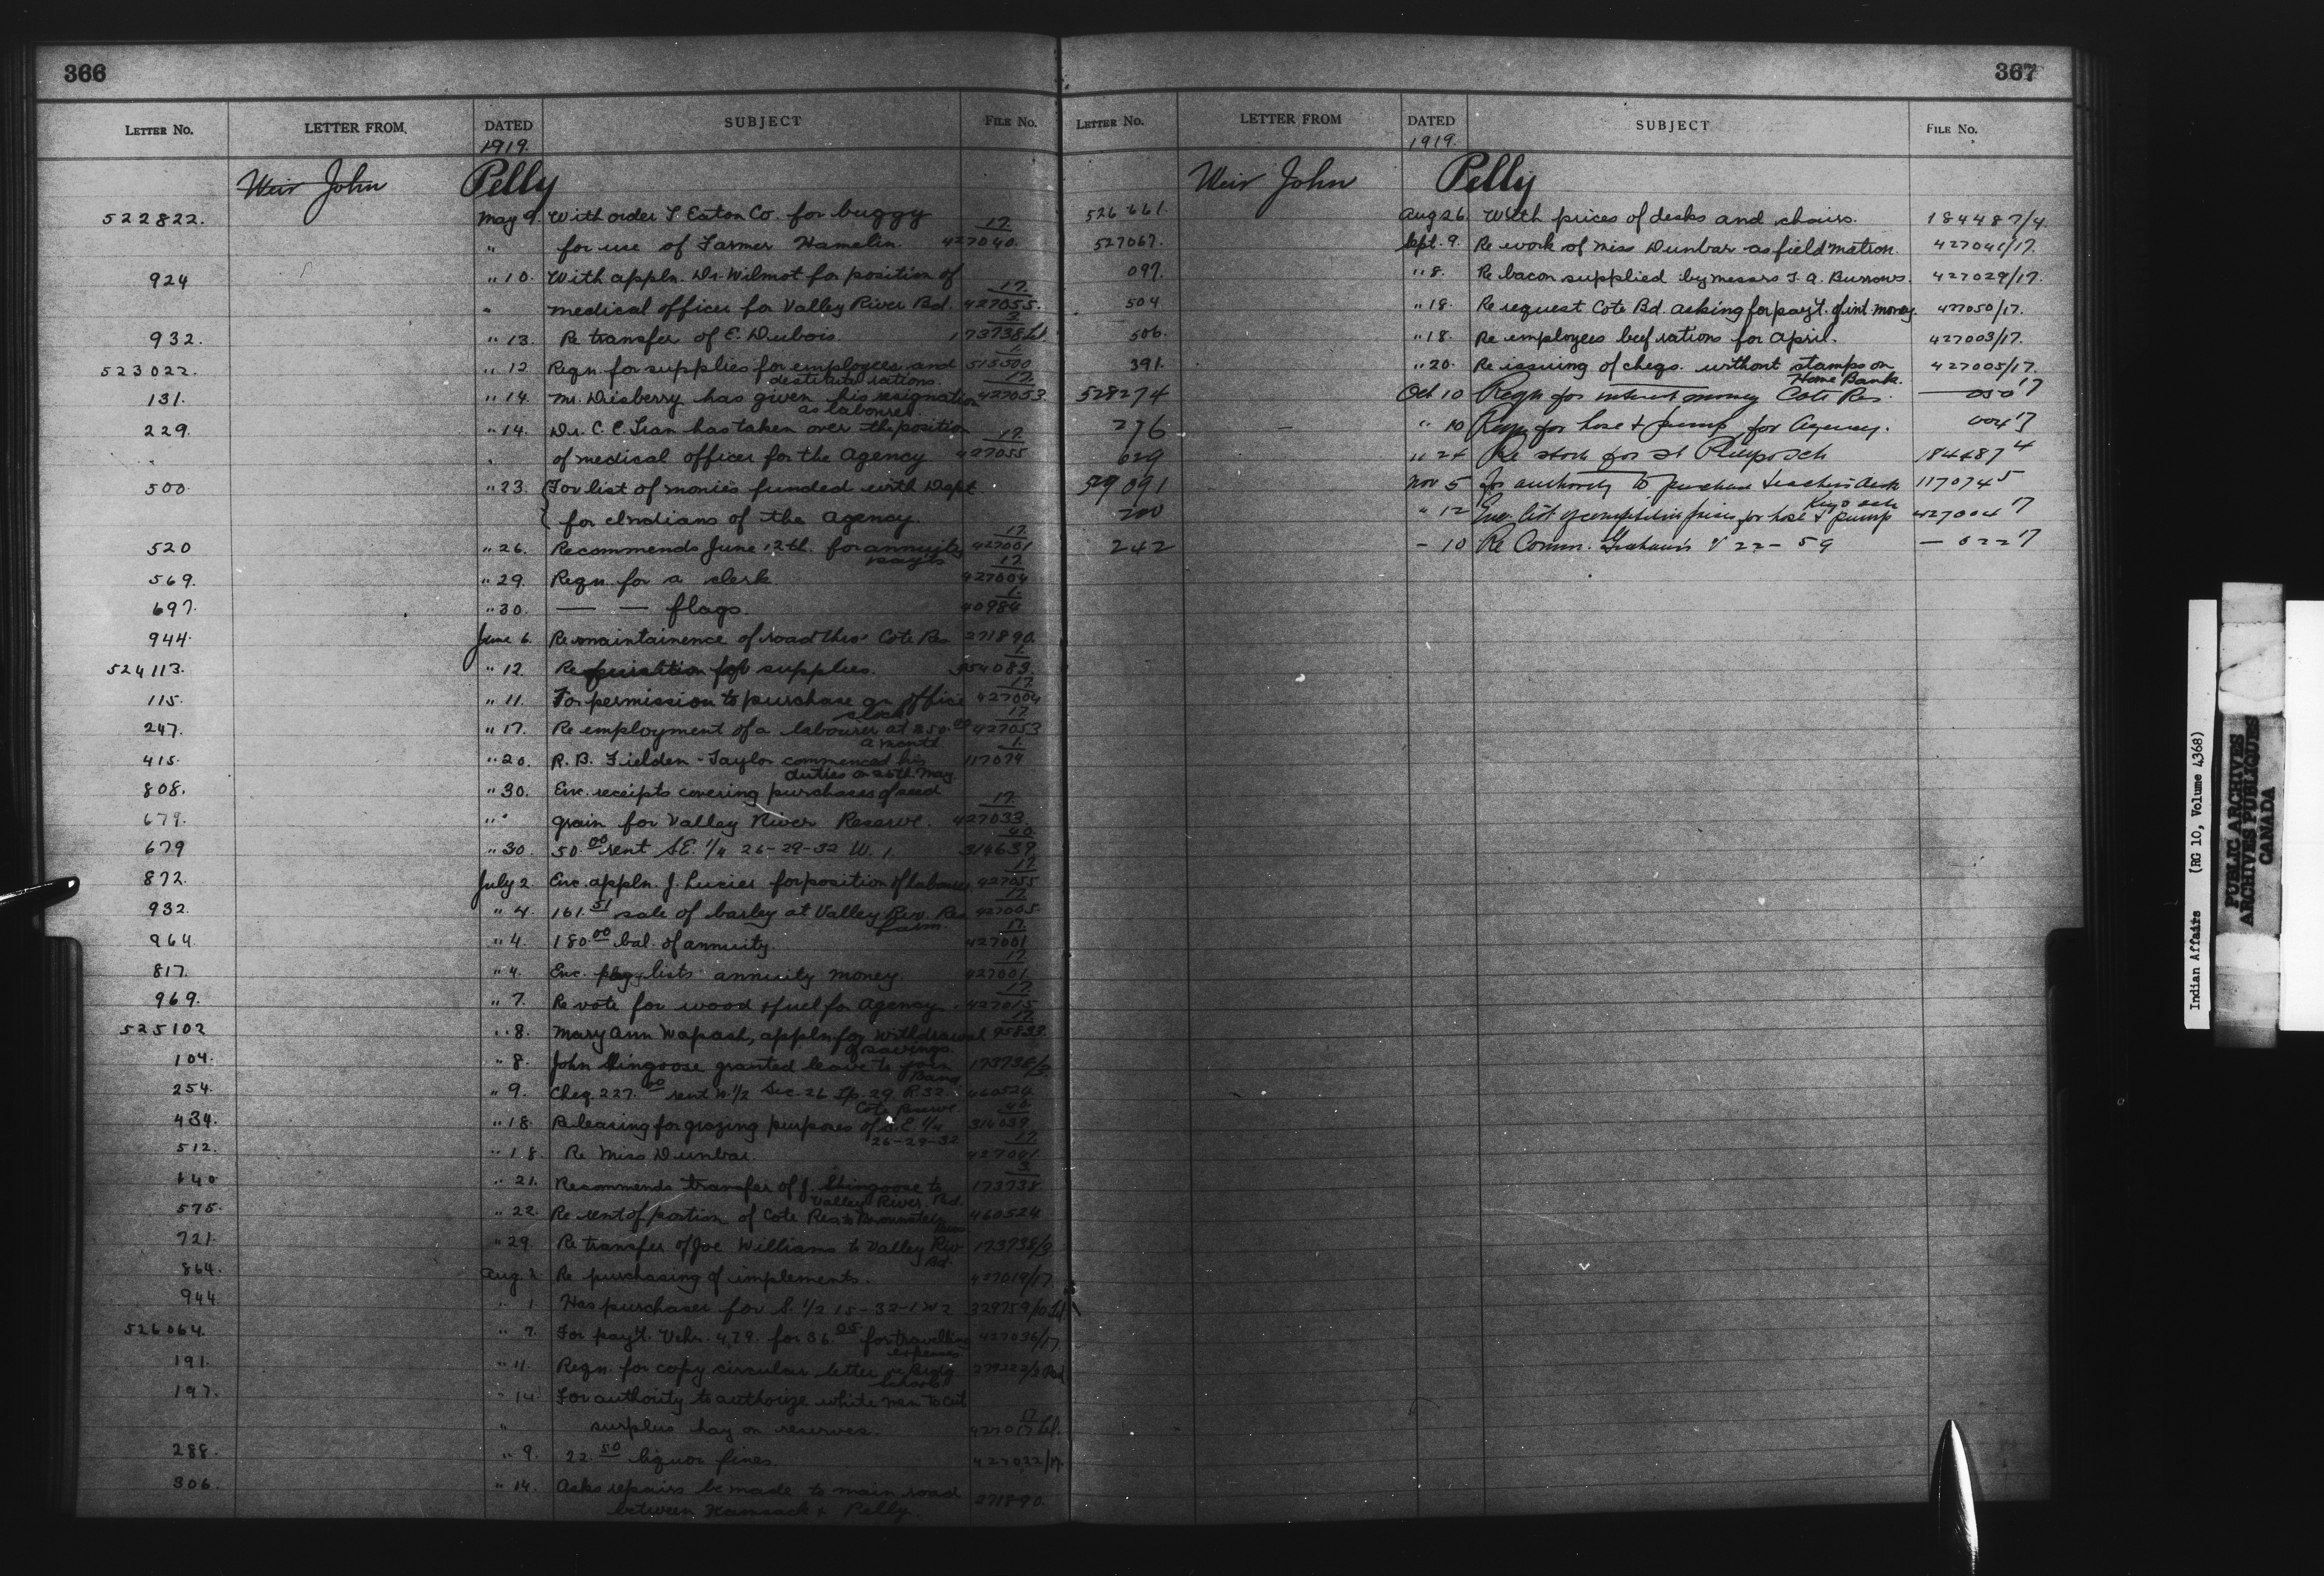 366
LETTER No. LETTER FROM. DATED SUBJECT FILE No.
1919.
Weir John Pelly
522822. May 9. With order T. Eaton Co. for buggy 17.
" for use of Farmer Hamelin. 427040.
924 " 10. With appln. Dr. Wilmot for position of 17.
" medical officer for Valley River Bd. 427055.
932. " 13. Re transfer of E. Dubois. 173738
523022. " 12 Reqn. for supplies for employees and 1. 513500
destitute rations.
131. " 14. Mr. Diesberry has given his resignation 17. 427053
as labourer.
229. " 14. Dr. C. E. Tran has taken over the position 17.
" of medical officer for the Agency 427055
500. " 23. For list of monies funded with Dept.
for Indians of the Agency.
520 " 26. Recommends June 12th. for annuity 17. 427001
payts
569. " 29. Reqn. for a clerk 17. 427004
697. " 30. — — flags. 1. 40984
944. June 6. Re maintainence of road thro' Cote Res 271890.
524113. " 12 Requisition for supplies. 1. 354083.
115. " 11. For permission to purchase an office 17. 427004
clock
247. " 17. Re employment of a labourer at $50.00 17. 427053
a month
415. " 20. R. B. Fielden-Taylor commenced his 1. 117074
duties on 26th. May.
808. " 30. Enc. receipts covering purchases of seed 17.
679. " grain for Valley River Reserve. 427033.
679 " 30. 50.00 rent S.E. 1/4 26-29-32 W. 1. 40. 314639.
872. July 2. Enc. appln. J. Lucier for position of labourer 17. 427055
932. " 4. 161.51 sale of barley at Valley Riv. Res 17. 427005.
farm.
964. " 4. 180.00 bal. of annuity. 17. 427001
817. " 4. Enc. pay lists annuity money. 17. 427001
969. " 7. Re vote for wood & fuel for Agency. 17. 427015
525102 " 8. Mary Ann Wapash, appln for withdrawal 17. 95833.
of savings.
104. " 8. John Stingoose granted leave to join 173738/3.
Band.
254. " 9. Cheq. 227.00 rent N. 1/2 Sec. 26 Tp. 29 R. 32 460524
Cote Reserve.
434. " 18. Re leasing for grazing purposes of S.E. 1/4 40. 314639
26-29-32
512. " 18. Re Miss Dunbar. 17. 427041
640 " 21. Recommends transfer of J. Stingoose to 3. 173738.
Valley River Bd.
575. " 22. Re rent of portion of Cote Res to 460524
721. " 29. Re transfer of Joe Williams to Valley Riv 173738/3
Bd.
864. Aug. 2 Re purchasing of implements. 427019/17
944 " 1 Has purchaser for S. 1/2 15-32-1 W2 329759/10
526064. " 7. For pay't. Vchr. 479. for 36.05 for travelling 427036/17
expenses.
191. " 11. Reqn. for copy circular letter re Bldg
schools
197. " 14 For authority to authorize white men to cut
" surplus hay on reserves. 17 427017
288. " 9. 22.50 liquor fines. 427022/17.
306. " 14. Asks repairs be made to main road
between Kamsack & Pelly. 271890.
367
LETTER No. LETTER FROM DATED SUBJECT FILE No.
1919.
Weir John Pelly
526661. Aug 26. With prices of desks and chairs. 184487/4.
527067. Sept. 9. Re work of Miss Dunbar as field matron. 427041/17.
097. " 8. Re bacon supplied by messrs T. A. Burrows. 427029/17.
504 " 18. Re request Cote Bd. asking for pay't. of int. money. 427050/17.
506. " 18. Re employees beef rations for April. 427003/17.
391. " 20. Re issuing of cheqs. without stamps on 427005/17.
Home Bank.
528274 Oct 10 Reqn for interest money Cote Res. — 050 17
276 " 10 Reqn for hose & pump for Agency. 004 17
629 " 24 Re stock for St Philips Sch 184487 4
529091 Nov 5 for authority to purchase teachers desk 117074 5
Keys sch
200 " 12 Enc. list of competitive prices for hose & pump 427004 17
242 – 10 Re Comm. Graham's V 22 – 59 — 022 17
Indian Affairs (RG 10, Volume 4368)
PUBLIC ARCHIVES
ARCHIVES PUBLIQUES
CANADA